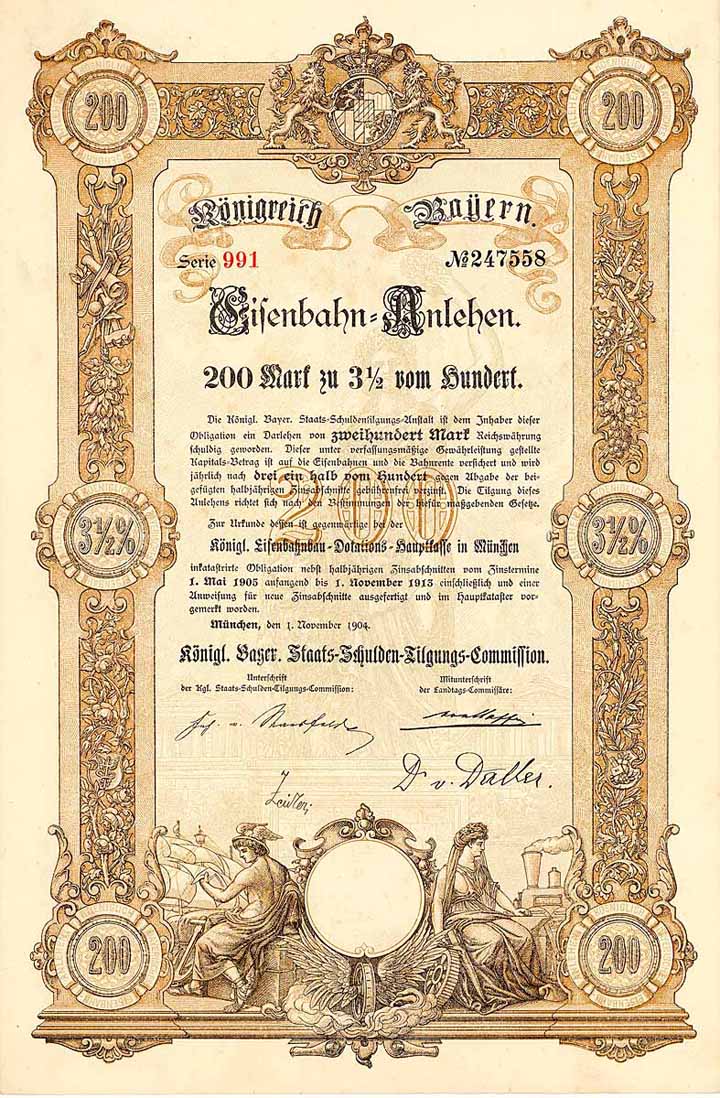 200
200
Königreich Bayern.
Serie 991 № 247558
Eisenbahn-Anlehen.
200 Mark zu 3½ vom Hundert.
Die Königl. Bayer. Staats-Schuldentilgungs-Anstalt ist dem Inhaber dieser
Obligation ein Darlehen von zweihundert Mark Reichswährung
schuldig geworden. Dieser unter verfassungsmäßige Gewährleistung gestellte
Kapitals-Betrag ist auf die Eisenbahnen und die Bahnrente versichert und wird
jährlich nach drei ein halb vom Hundert gegen Abgabe der bei-
gefügten halbjährigen Zinsabschnitte gebührenfrei verzinst. Die Tilgung dieses
Anlehens richtet sich nach den Bestimmungen der hiefür maßgebenden Gesetze.
200
Zur Urkunde dessen ist gegenwärtige bei der
3½%
3½%
Königl. Eisenbahnbau-Dotations-Hauptkasse in München
inkatastrirte Obligation nebst halbjährigen Zinsabschnitten vom Zinstermine
1. Mai 1905 anfangend bis 1. November 1913 einschließlich und einer
Anweisung für neue Zinsabschnitte ausgefertigt und im Hauptkataster vor-
gemerkt worden.
München, den 1. November 1904.
Königl. Bayer. Staats-Schulden-Tilgungs-Commission.
Unterschrift
der Kgl. Staats-Schulden-Tilgungs-Commission:
Mitunterschrift
der Landtags-Commissäre:
Dr v. Daller.
200
200